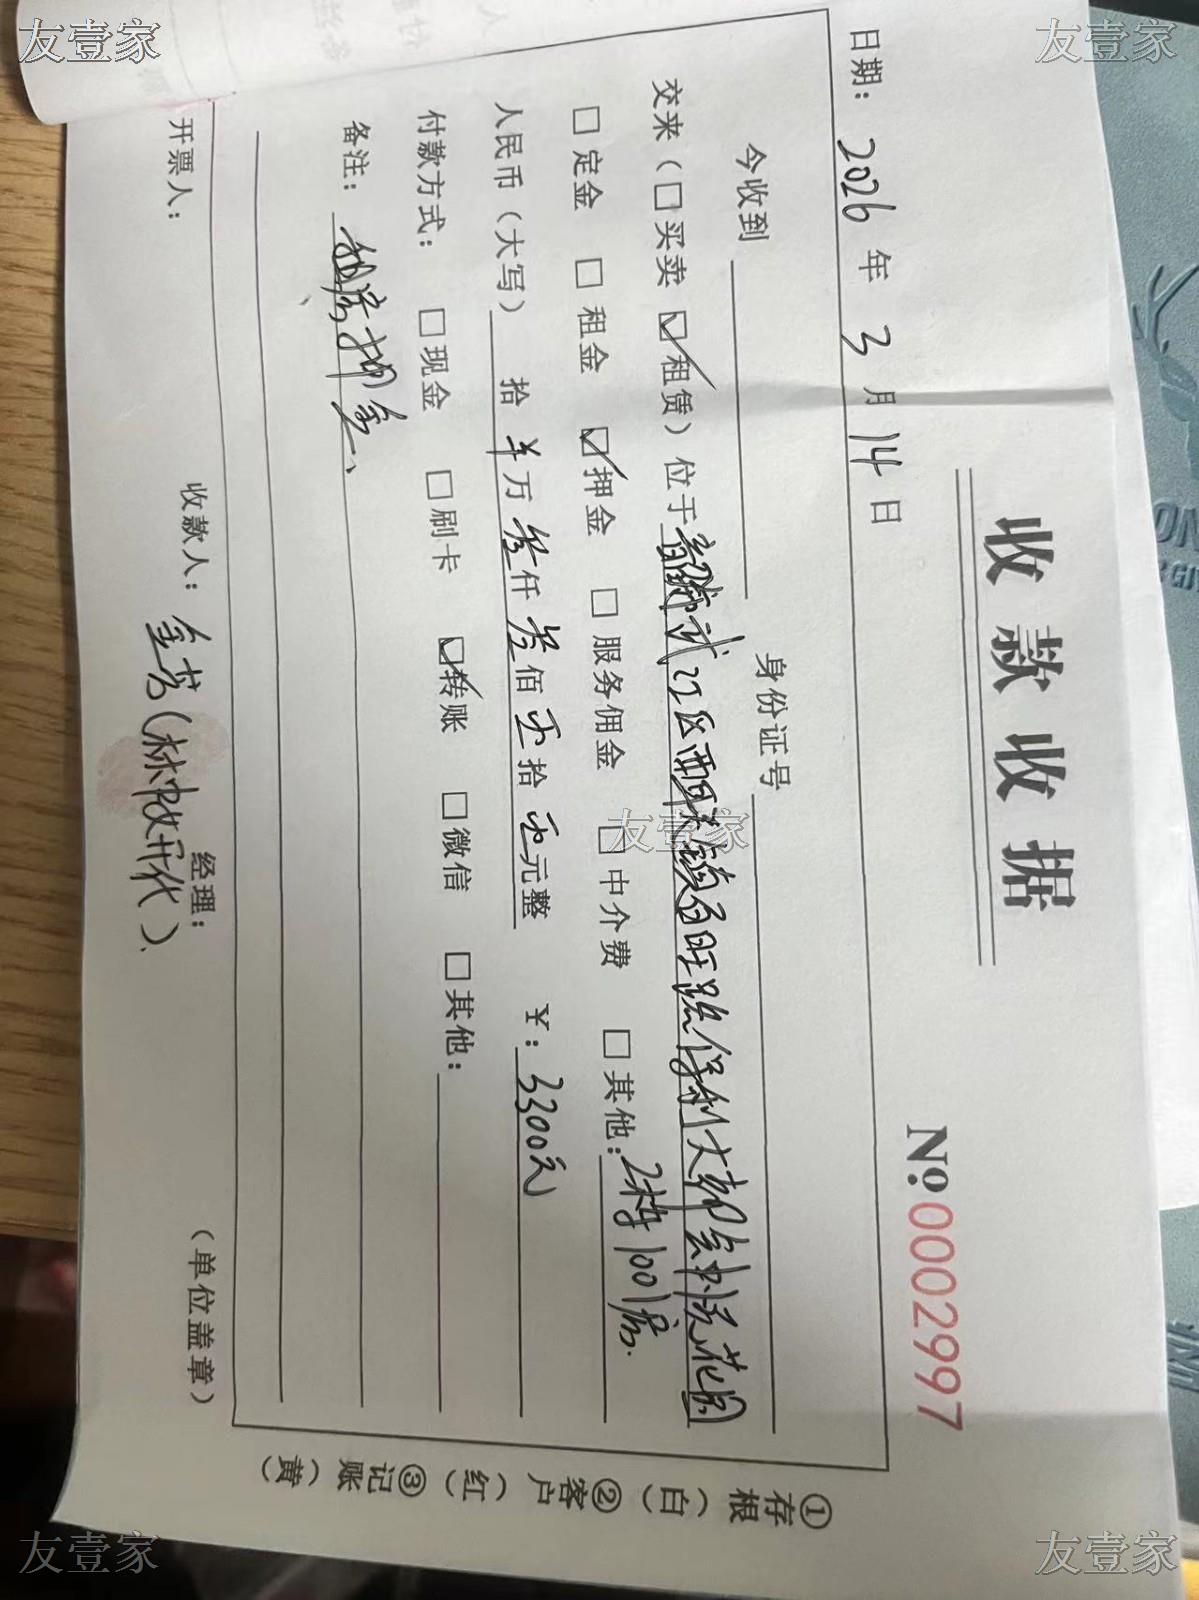 收款收据
No.0002997
日期: 2026年3月14日
今收到 身份证号
交来(□买卖 ☑租赁)位于 区 镇 旺路保利大都会 花园
□定金 □租金 ☑押金 □服务佣金 □中介费 □其他: 2栋1001房.
人民币(大写) 拾 万叁仟叁佰 拾 元整 ¥: 3300元
付款方式: □现金 □刷卡 ☑转账 □微信 □其他:
备注: 租房押金、
开票人: 收款人: 金芳(林 代). 经理: (单位盖章)
①存根(白) ②客户(红) ③记账(黄)
友壹家
友壹家
友壹家
友壹家
友壹家